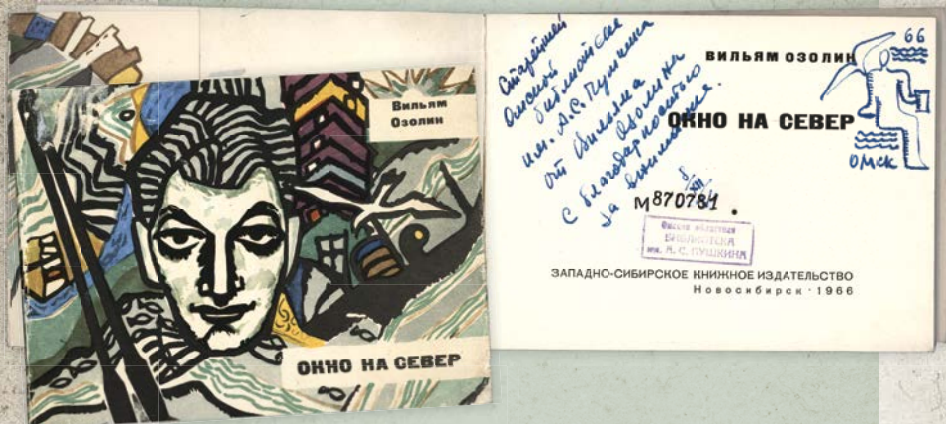 Вильям
Озолин
ОКНО НА СЕВЕР
Старейшей
Омской библиотеке
им. А.С. Пушкина
от Вильяма
Озолина
с благодарностью
за внимание.
8/XII
66
ОМСК
ВИЛЬЯМ ОЗОЛИН
ОКНО НА СЕВЕР
М870781
Омская областная
БИБЛИОТЕКА
им. А. С. ПУШКИНА
ЗАПАДНО-СИБИРСКОЕ КНИЖНОЕ ИЗДАТЕЛЬСТВО
Новосибирск · 1966